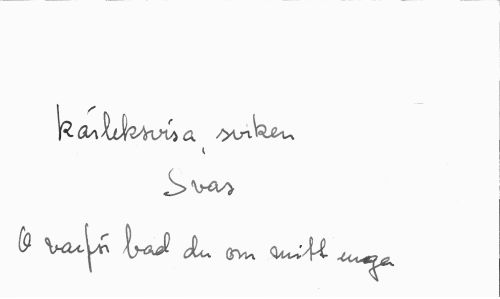 kärleksvisa, sviken
Svar
O varför bad du om mitt unga